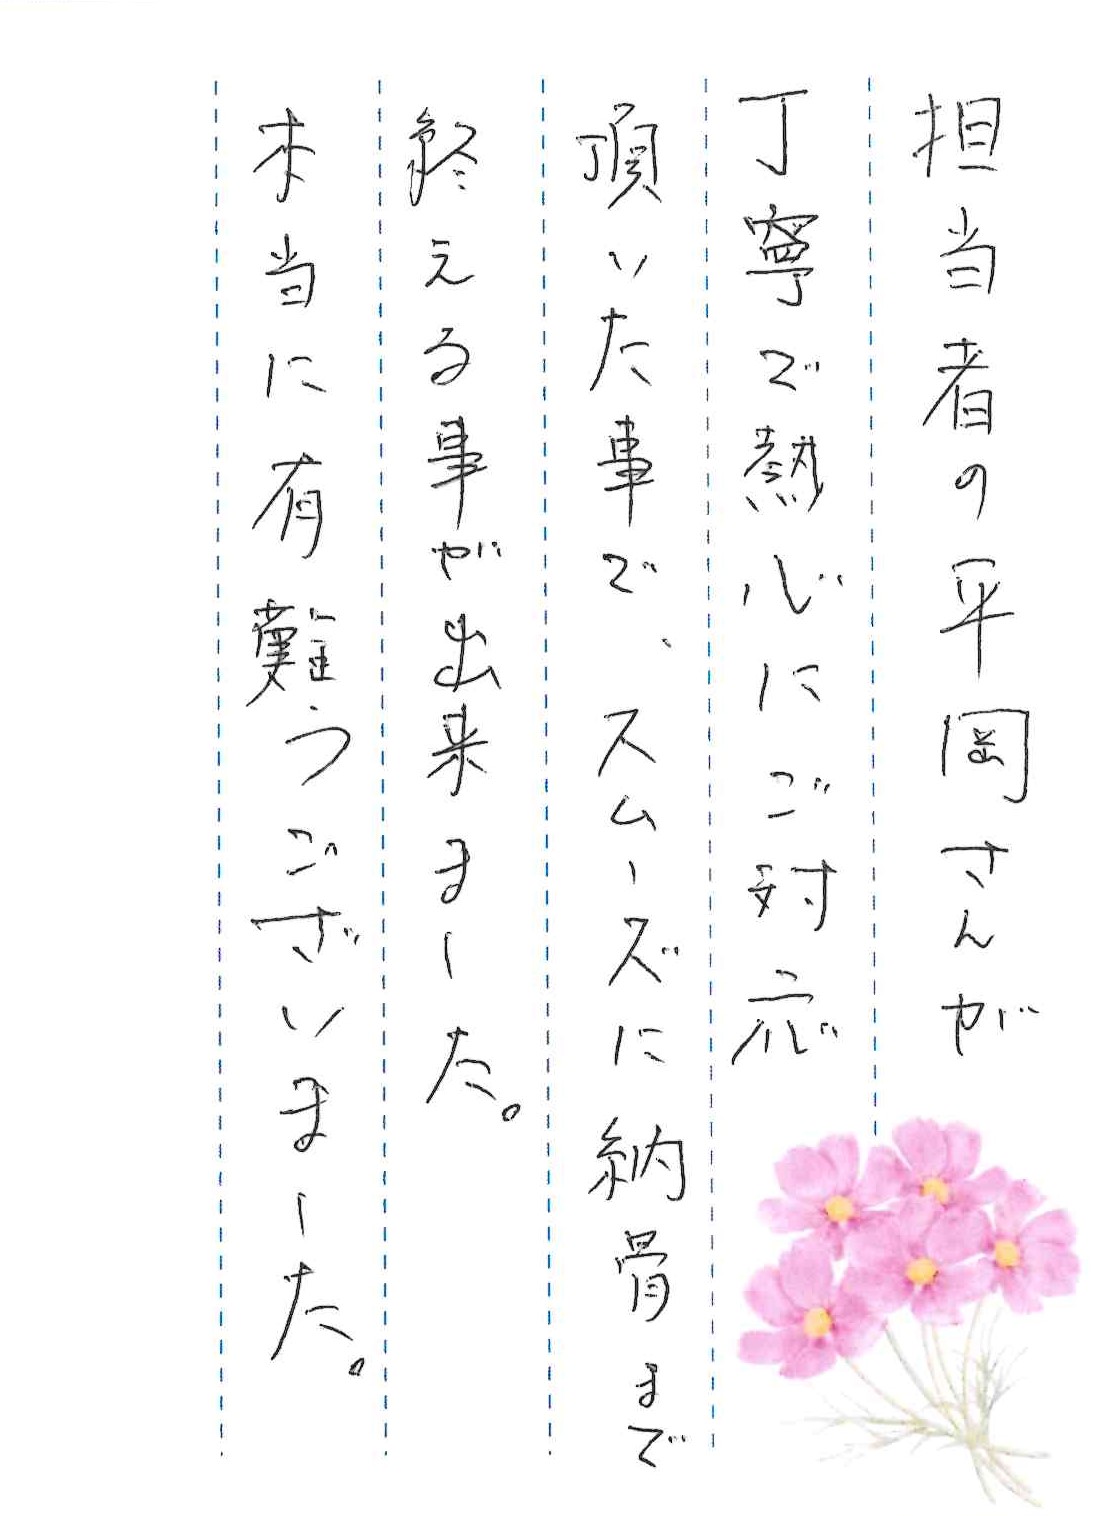 担当者の平岡さんが
丁寧で熱心にご対応
頂いた事で、スムーズに納骨まで
終える事が出来ました。
本当に有難うございました。